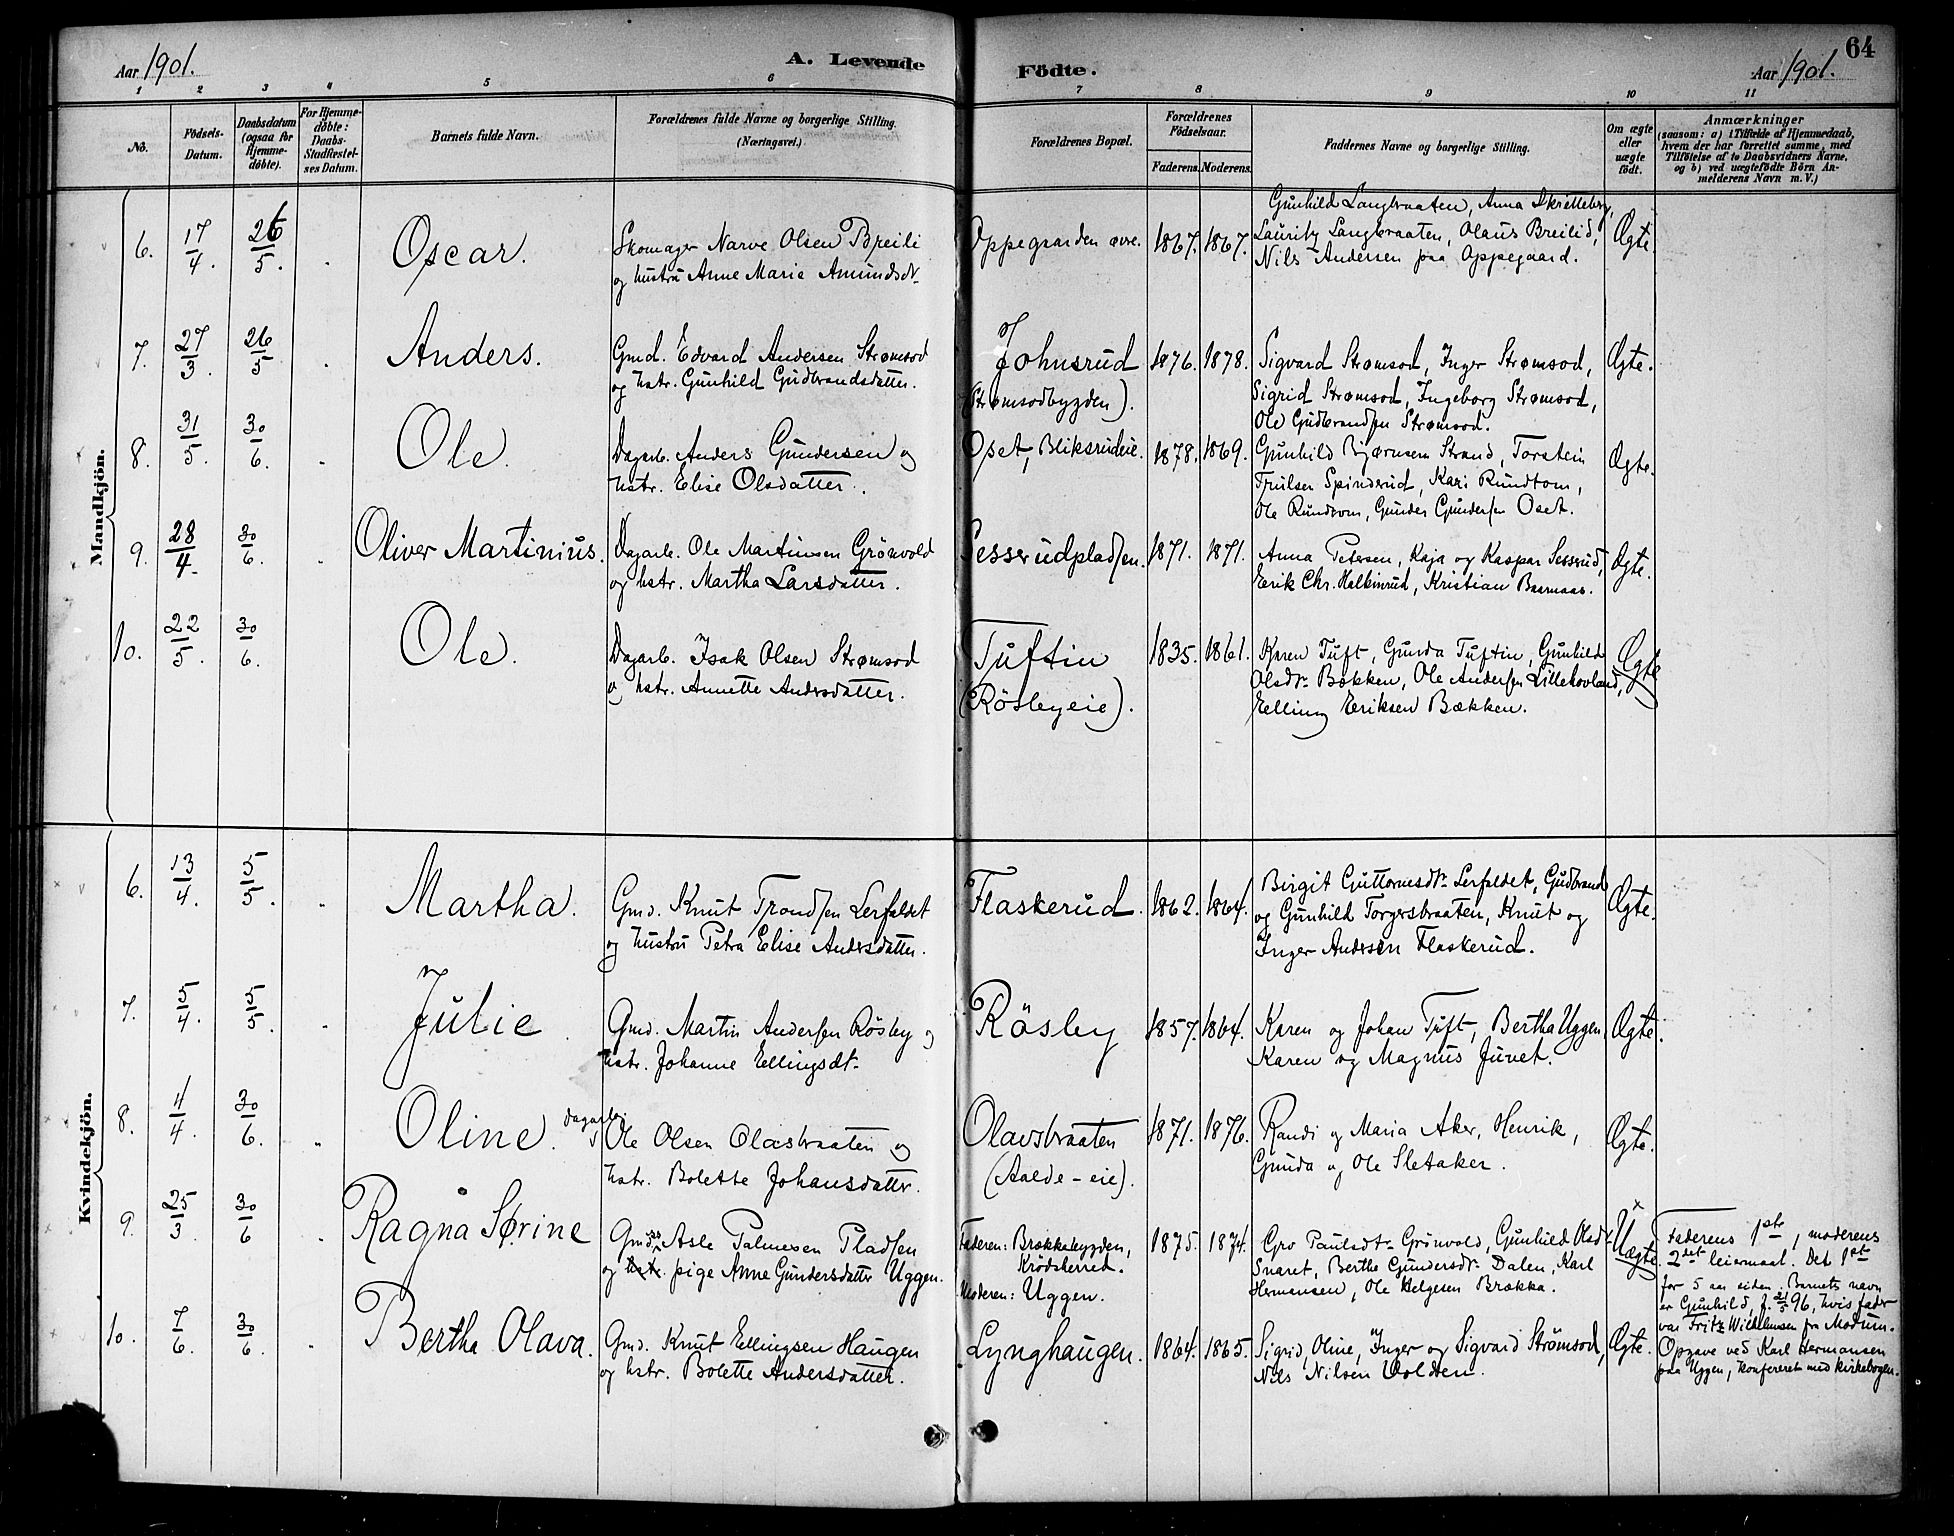 Aar 1901.
A. Levende
Födte.
Aar 1901.
64
1 2 3 4 5 6 7 8 9 10 11
No.
Födsels-Datum.
Daabsdatum (ogsaa for Hjemme-döbte).
For Hjemme-döbte: Daabs-Stadfæstel-ses Datum.
Barnets fulde Navn.
Forældrenes fulde Navne og borgerlige Stilling.
(Næringsvei.)
Forældrenes Bopæl.
Forældrenes Födselsaar.
Faderens. Moderens.
Faddernes Navne og borgerlige Stilling.
Om ægte eller uægte födt.
Anmærkninger
(saasom: a) i Tilfælde af Hjemmedaab,
hvem der har forrettet samme, med
Tilföielse af to Daabsvidners Navne,
og b) ved uægtefödte Börn An-
melderens Navn m. V.)
Mandkjön.
6. 17/4. 26/5. Oscar. Skomager Narve Olsen Breili
og hustru Anne Marie Amundsdt.
Oppegaarden øvre. 1867. 1867.
Gunhild Langbraaten, Anna Skretteberg,
Lauritz Langbraaten, Olaus Breilid,
Nils Andersen paa Oppegaard.
Ægte.
7. 27/3. 26/5 Anders. Gmd. Edvard Andersen Strømsod
og hstr. Gunhild Gudbrandsdatter.
Johnsrud
(Strømsodbygden).
1876. 1878.
Sigvard Strømsod, Inger Strømsod,
Sigrid Strømsod, Ingeborg Strømsod,
Ole Gudbrandsen Strømsod.
Ægte.
8. 31/5. 30/6. Ole. Dagarb. Anders Gundersen og
hstr. Elise Olsdatter.
Oset, Bliksrudeie. 1878. 1869.
Gunhild Bjørnsen Strand, Torstein
Trulsen Spinderud, Kari Rundtom,
Ole Rundtom, Gunder Gundersen Oset.
Ægte.
9. 28/4. 30/6. Oliver Martinius. Dagarb. Ole Martinsen Grönvold
og hstr. Martha Larsdatter.
Sesserudpladsen. 1871. 1871.
Anna Petersen, Kaja og Kaspar Sesserud,
Erik Chr. Halbinrud, Kristian
Ægte.
10. 22/5. 30/6. Ole. Dagarb. Isak Olsen Strømsod
og hstr. Annette Andersdatter.
Tuftin
(Rösbyeie).
1835. 1861.
Karen Tuft, Gunda Tuftin, Gunhild
Olsdt. Bækken, Ole Andersen Lillehovland,
Elling Eriksen Bækken.
Ægte
Kvindekjön.
6. 13/4. 5/5. Martha. Gmd. Knut Trondsen Lerfaldet
og hustru Petra Elise Andersdatter.
Flaskerud. 1862. 1864.
Birgit Guttormsdt. Lerfaldet, Gudbrand
og Gunhild Torgersbraaten, Knut og
Inger Andersen Flaskerud.
Ægte.
7. 5/4. 5/5. Julie Gmd. Martin Andersen Rösby og
hstr. Johanne Ellingsdt.
Rösby 1857. 1864.
Karen og Johan Tuft, Bertha Uggen,
Karen og Magnus Juvet.
Ægte.
8. 4/4. 30/6. Oline. dagarb.
Ole Olsen Olasbraaten og
hstr. Bolette Johansdatter.
Olavsbraaten
(Aalde-eie).
1871. 1876.
Randi og Maria Aker, Henrik,
Gunda og Ole Sletaker.
Ægte.
9. 25/3. 30/6 Ragna Sørine Gmds. Asle Palmesen Pladsen
og hstr. pige Anne Gundersdatter Uggen.
Faderen: Brækkabygden,
Krödsherred.
Moderen: Uggen.
1875. 1874.
Gro Paulsdt. Grönvold, Gunhild Olsdt.
Snaret, Berthe Gundersdt. Dalen, Karl
Hermansen, Ole Helgesen Brækka.
Uægte.
Faderens 1ste, moderens
2det leiermaal. Det 1ste
for 5 aar siden. Barnets navn
er Gunhild, f. 21/5 96, hvis fader
var Fritz Wilhelmsen fra Modum.
Opgave ved Karl Hermansen
paa Uggen, konfereret med kirkebogen.
10. 7/6. 30/6. Bertha Olava. Gmd. Knut Ellingsen Haugen
og hstr. Bolette Andersdatter.
Lynghaugen. 1864. 1865.
Sigrid, Oline, Inger og Sigvard Strömsod,
Nils Nilsen Volden.
Ægte.